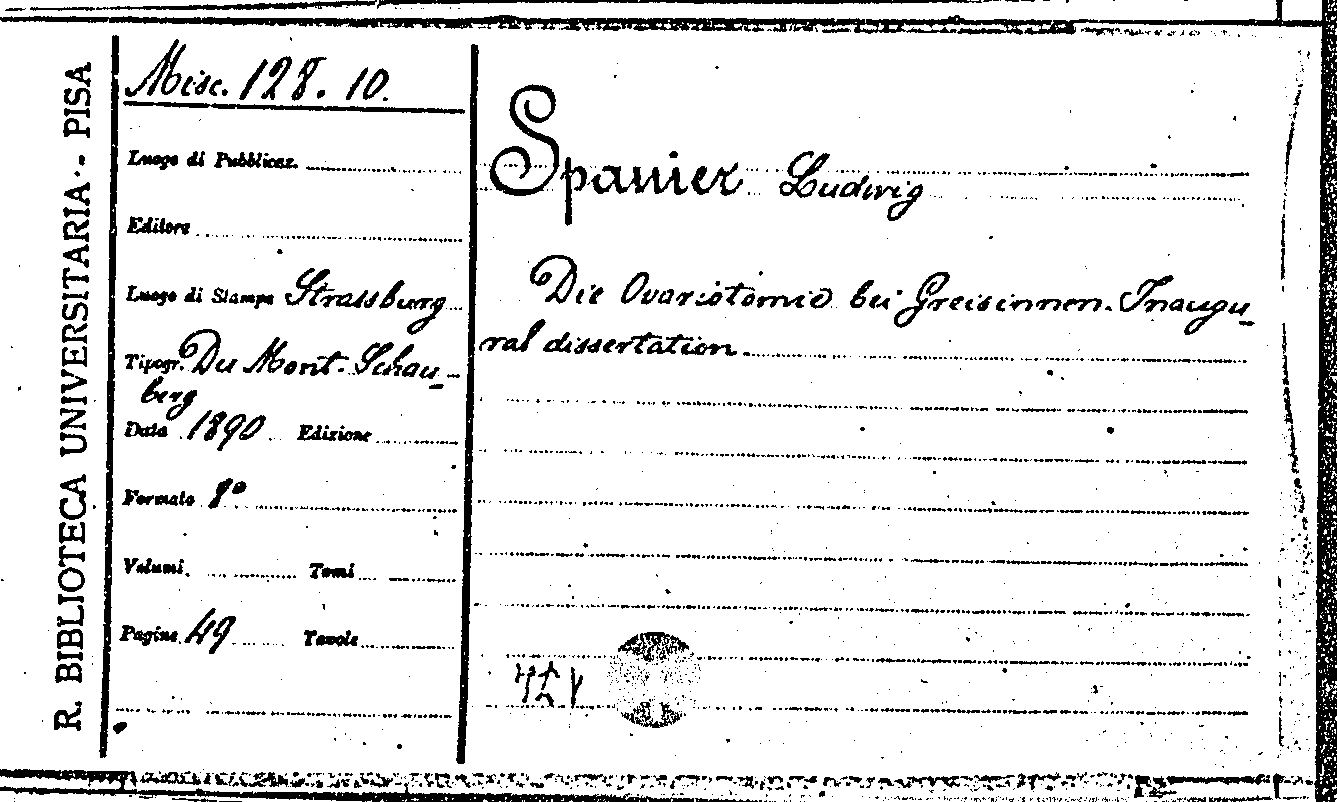 R. BIBLIOTECA UNIVERSITARIA - PISA
Misc. 128. 10.
Luogo di Pubblicaz.
Editore
Luogo di Stampa Strassburg
Tipogr. Du Mont-Schau-
berg
Data 1890 Edizione
Formato 8°
Volumi. Tomi
Pagine 49 Tavole
Spanier Ludwig
Die Ovariotomie bei Greisinnen. Inaugu-
ral dissertation